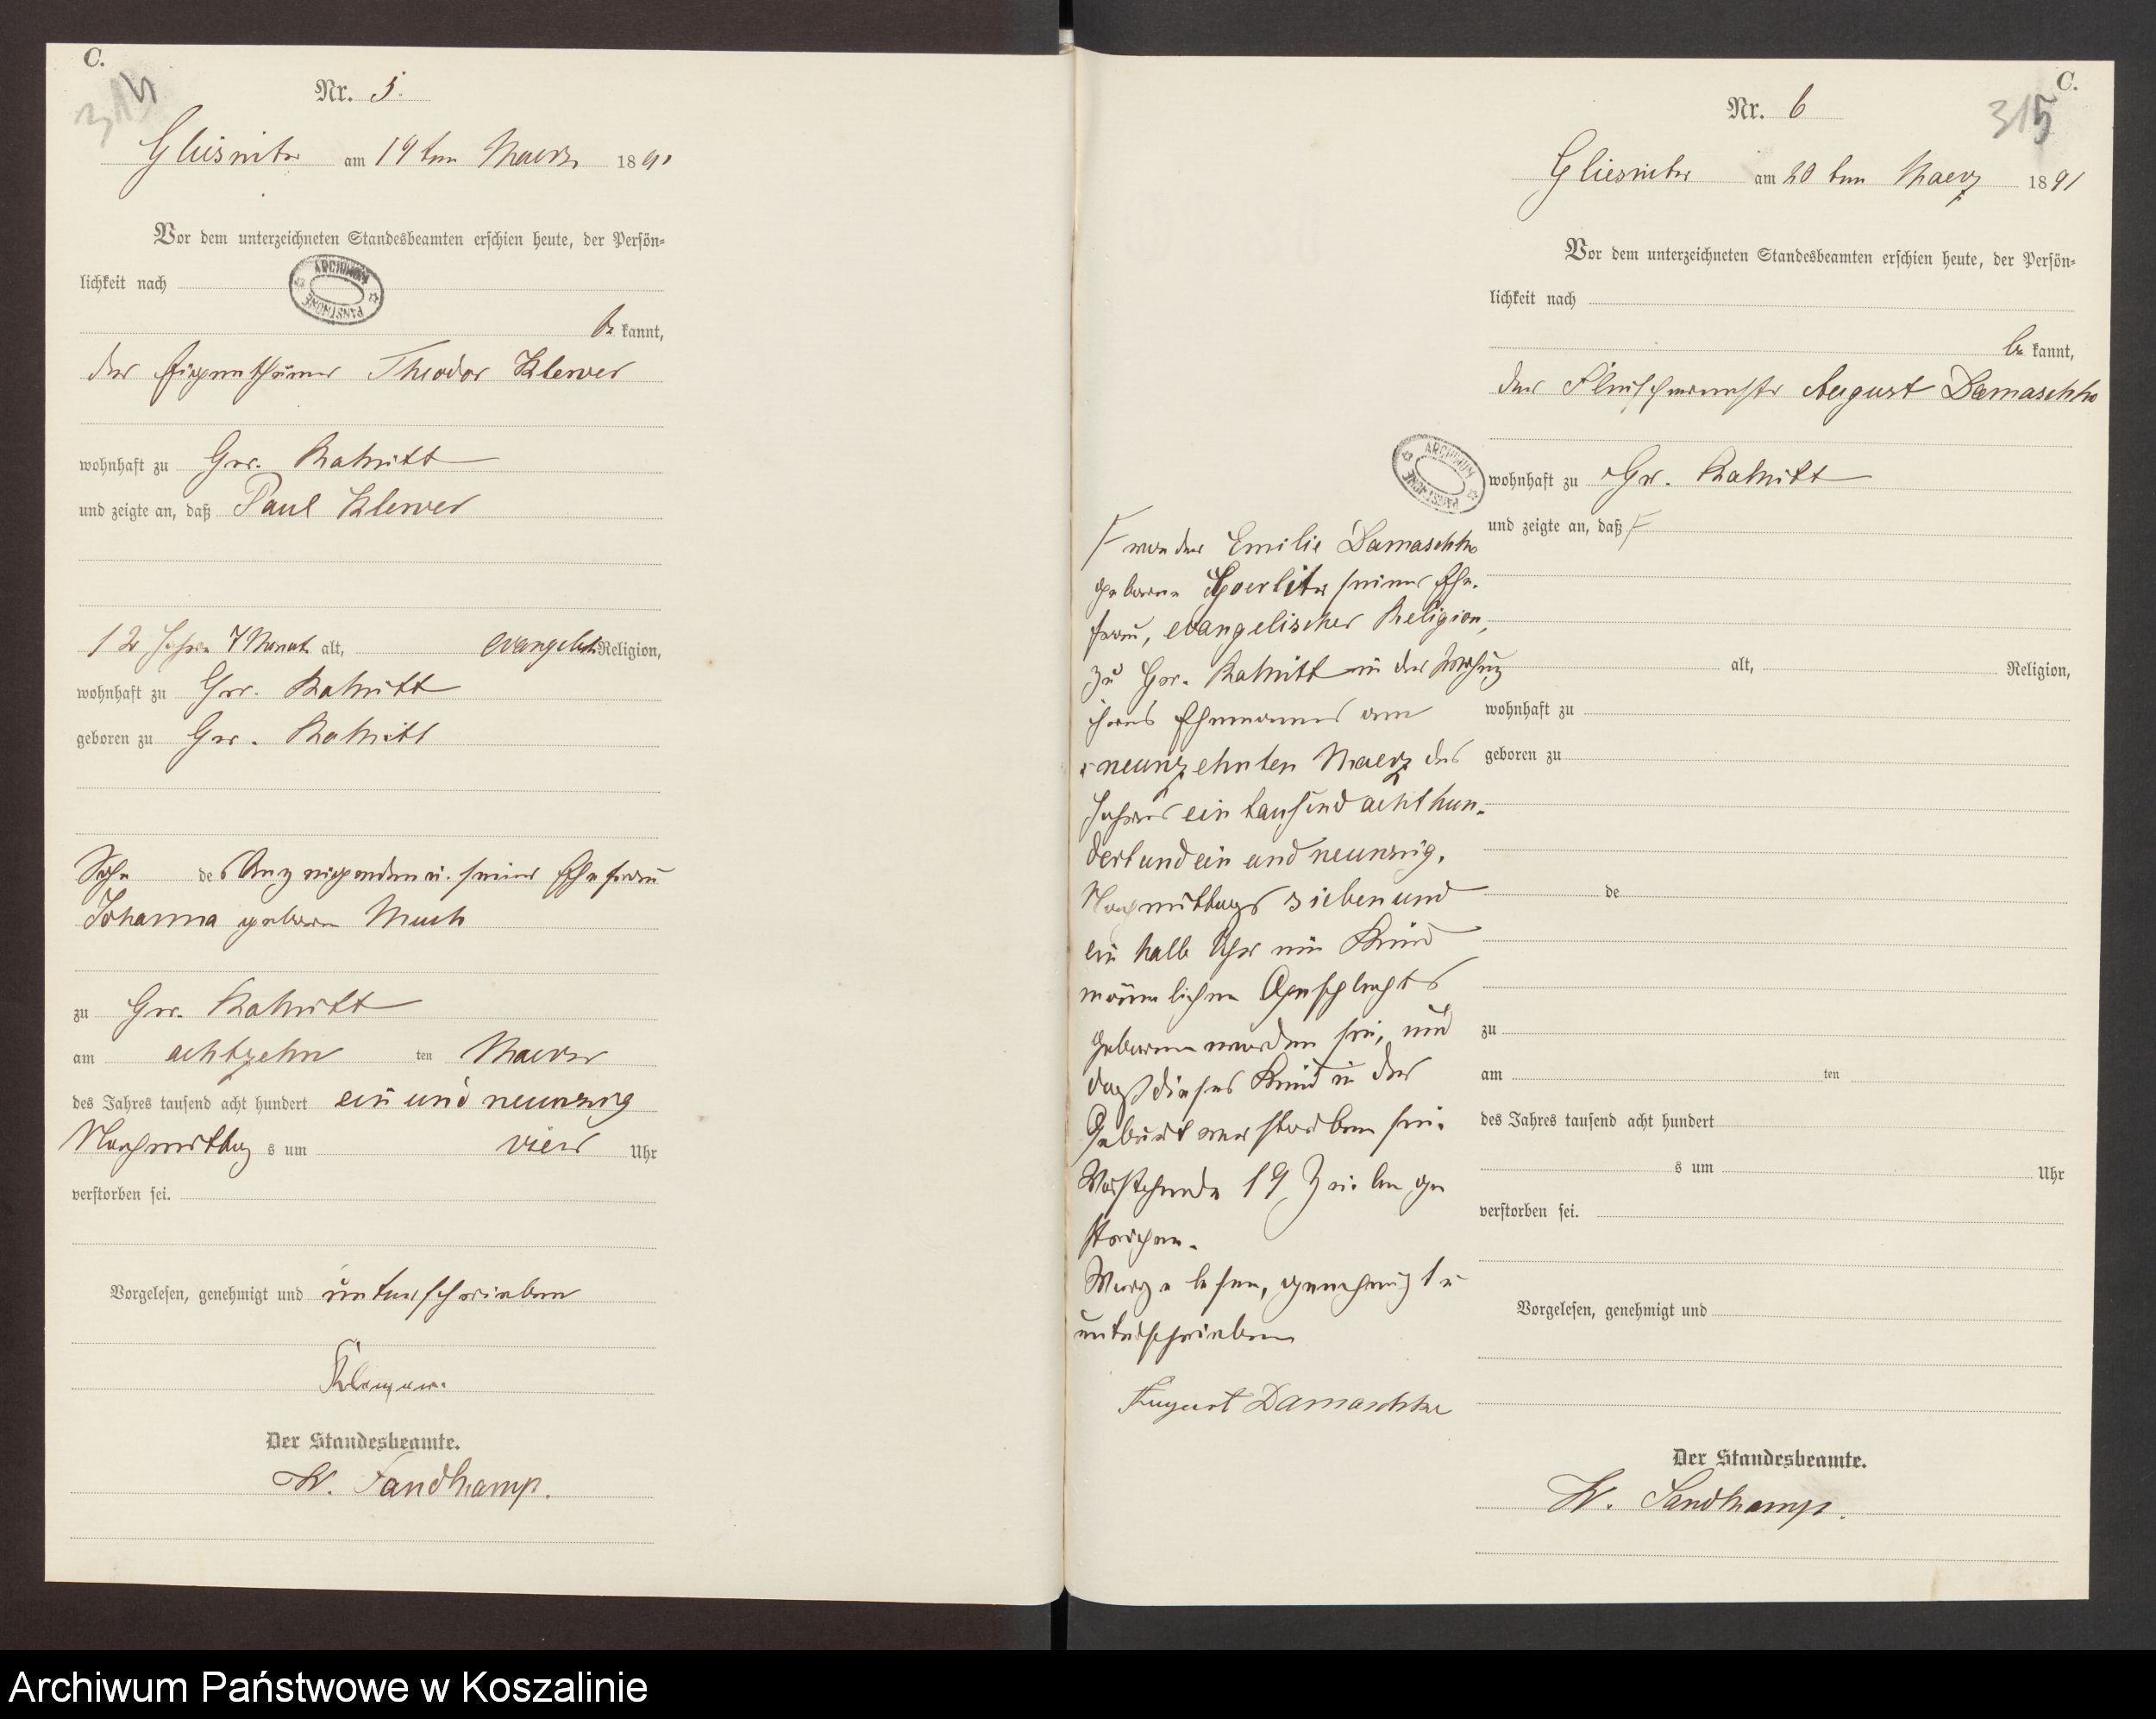 C.
314
Nr. 5.
Gliesnitz am 19ten Maerz 1891
Vor dem unterzeichneten Standesbeamten erschien heute, der Persön-
lichkeit nach
ARCHIWUM PAŃSTWOWE
be kannt,
der Eigenthümer Theodor Klewer
wohnhaft zu Gr. Rakitt
und zeigte an, daß Paul Klewer
12 Jahre 7 Monate alt, evangelisch Religion,
wohnhaft zu Gr. Rakitt
geboren zu Gr. Rakitt
Sohn des Anzeigenden u. seiner Ehefrau
Johanna geborne
zu Gr. Rakitt
am achtzehn ten Maerz
des Jahres tausend acht hundert ein und neunzig
Nachmittag s um vier Uhr
verstorben sei.
Vorgelesen, genehmigt und unterschrieben
Der Standesbeamte.
W. Sandkamp.
C.
315
Nr. 6
Gliesnitz am 20 ten Maerz 1891
Vor dem unterzeichneten Standesbeamten erschien heute, der Persön-
lichkeit nach
be kannt,
der Fleischermeister August Damaschke
ARCHIWUM PAŃSTWOWE
wohnhaft zu Gr. Rakitt
und zeigte an, daß F
F von der Emilie Damaschke
geborne Goerlitz seiner Ehe-
frau, evangelischer Religion,
zu Gr. Rakitt in der Wohnung
ihres Ehemannes am
neunzehnten Maerz des
Jahres ein tausend acht hun-
dert und ein und neunzig,
Nachmittags sieben und
ein halb Uhr ein Kind
männlichen Geschlechts
geboren worden sei, und
daß dieses Kind in der
Geburt verstorben sei.
Vorstehende 19 Zeilen ge
strichen.
Vorgelesen, genehmigt u
unterschrieben
August Damaschke
alt, Religion,
wohnhaft zu
geboren zu
de
zu
am ten
des Jahres tausend acht hundert
s um Uhr
verstorben sei.
Vorgelesen, genehmigt und
Der Standesbeamte.
W. Sandkamp.
Archiwum Państwowe w Koszalinie